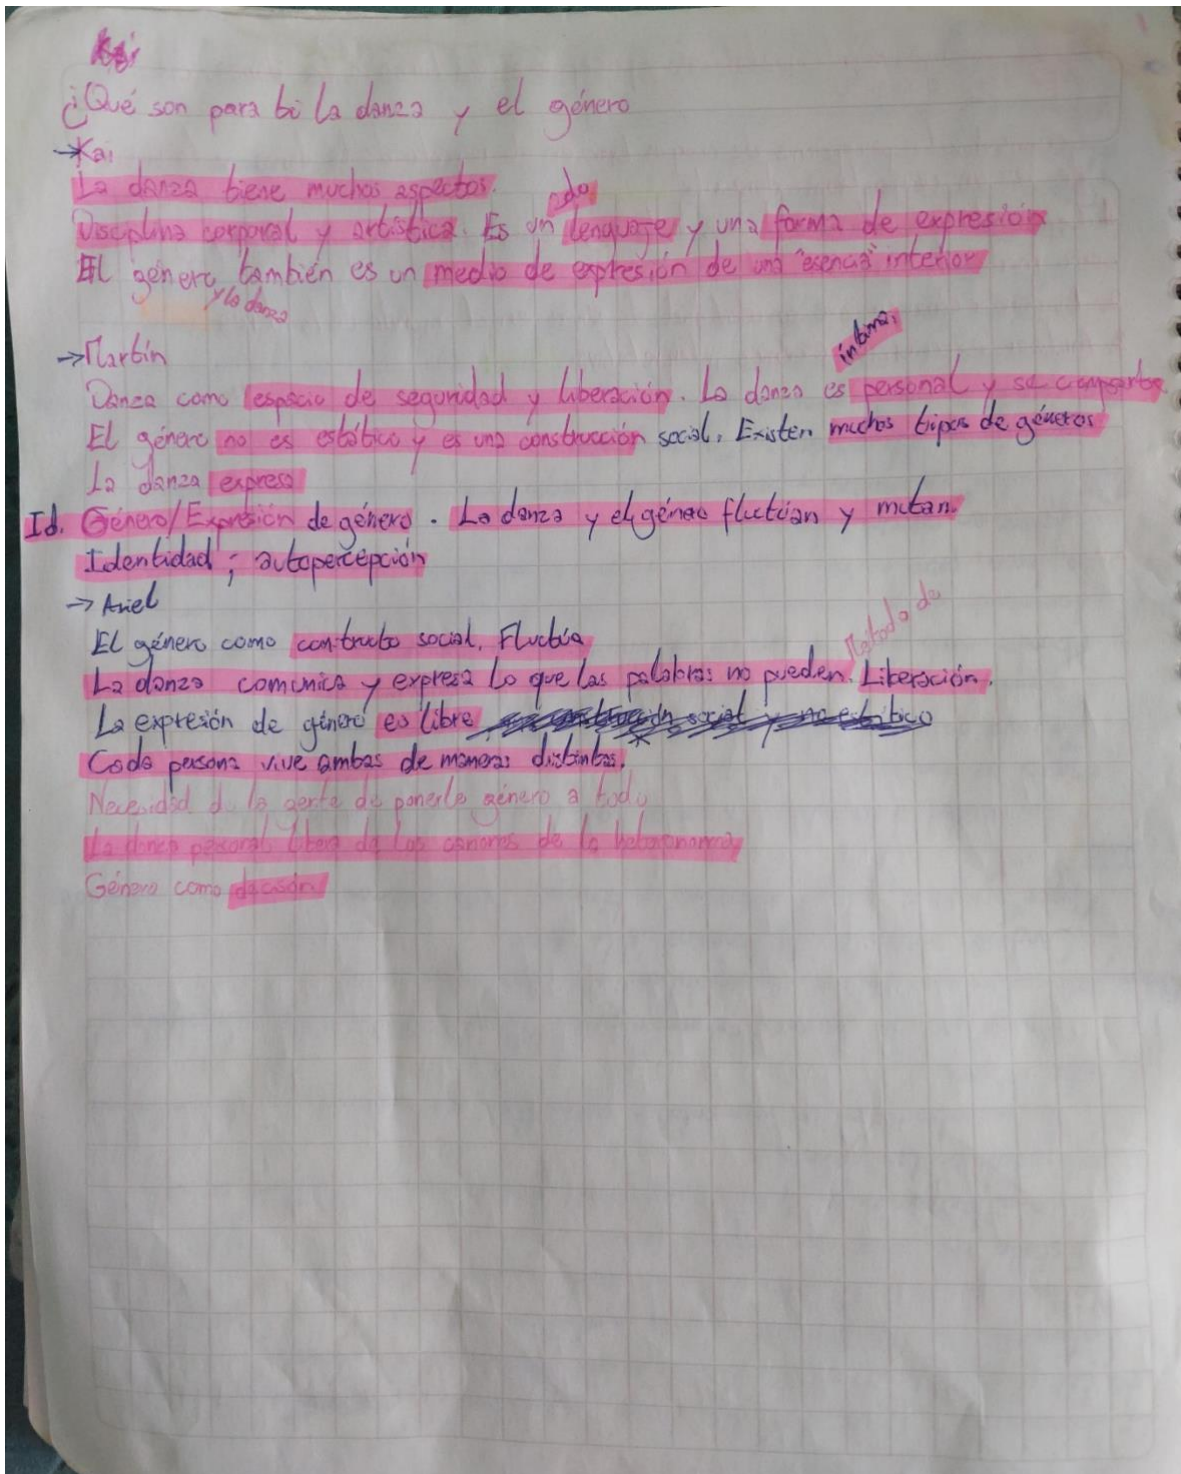 Kai
¿Qué son para ti la danza y el género
→Kai
La danza tiene muchos aspectos.
Disciplina corporal y artística. Es un lenguaje y una forma de expresión
El género también es un medio de expresión de una "esencia" interior
y la danza
→Martín
íntima,
Danza como espacio de seguridad y liberación. La danza es personal y se comparte.
El género no es estático y es una construcción social. Existen muchos tipos de géneros
La danza expresa
Id. Género/Expresión de género. La danza y el género fluctúan y mutan.
Identidad; autopercepción
→ Ariel
El género como constructo social. Fluctúa
Método de
La danza comunica y expresa lo que las palabras no pueden. Liberación.
La expresión de género es libre
Cada persona vive ambas de maneras distintas.
Necesidad de la gente de ponerle género a todo
La danza personal libera de los canones de la
Género como decisión